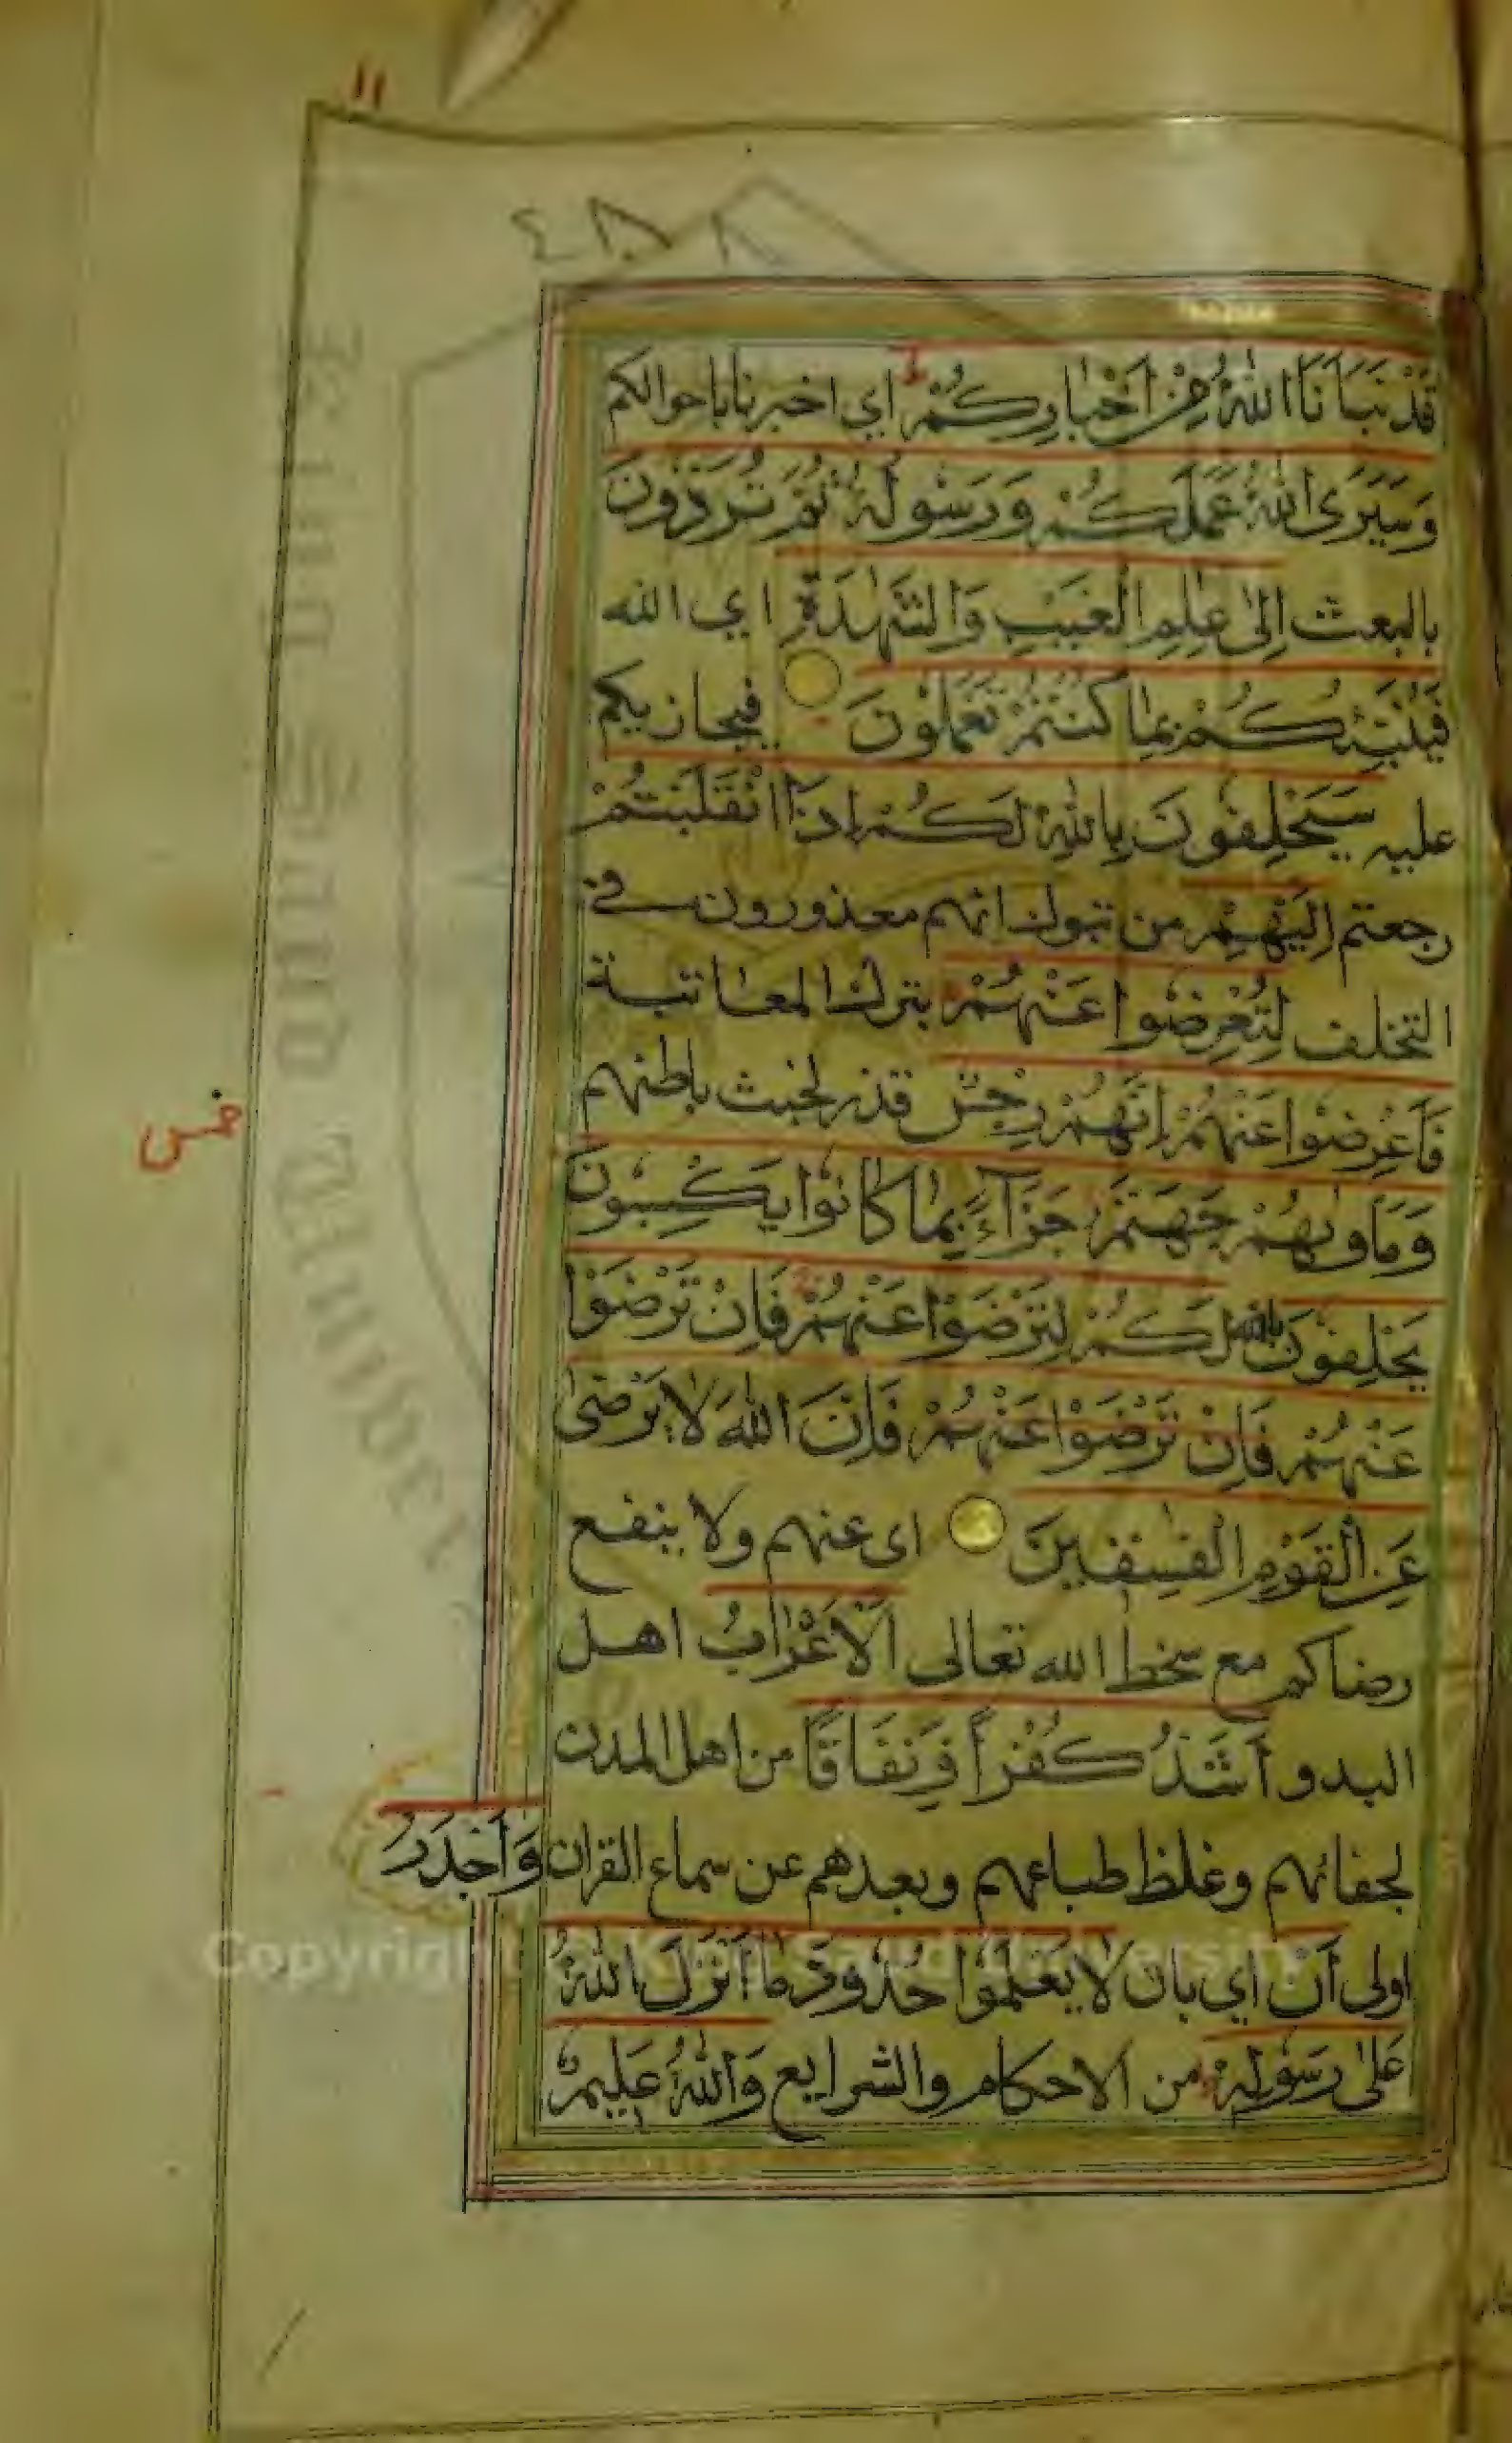 ١١
قَدْ نَبَّأَنَا اللّٰهُ مِنْ أَخْبَارِكُمْ اي اخبرنا باحوالكم
وَسَيَرَى اللّٰهُ عَمَلَكُمْ وَرَسُولُهُ ثُمَّ تُرَدُّونَ
بالبعث اِلىٰ عٰلِمِ الْغَيْبِ وَالشَّهٰدَةِ اي الله
فَيُنَبِّئُكُمْ بِمَا كُنْتُمْ تَعْمَلُونَ فيجازيكم
عليه سَيَحْلِفُونَ بِاللّٰهِ لَكُمْ إِذَا انْقَلَبْتُمْ
رجعتم اِلَيْهِمْ من تبوك انهم معذورون في
التخلف لِتُعْرِضُوا عَنْهُمْ بترك المعاتبة
فَأَعْرِضُوا عَنْهُمْ إِنَّهُمْ رِجْسٌ قذر لخبث باطنهم
وَمَأْوٰىهُمْ جَهَنَّمُ جَزَآءً بِمَا كَانُوا يَكْسِبُونَ
يَحْلِفُونَ بالله لَكُمْ لِتَرْضَوْا عَنْهُمْ فَإِنْ تَرْضَوْا
عَنْهُمْ فَإِنْ تَرْضَوْا عَنْهُمْ فَإِنَّ اللّٰهَ لَا يَرْضىٰ
عَنِ الْقَوْمِ الْفٰسِقِينَ اى عنهم ولا ينفع
رضاكم مع سخط الله تعالى اَلْأَعْرَابُ اهل
البدو أَشَدُّ كُفْرًا وَنِفَاقًا من اهل المدن
لجفائهم وغلظ طباعهم وبعدهم عن سماع القران وَأَجْدَرُ
اولى أَنْ اي بان لَا يَعْلَمُوا حُدُودَ مَا أَنْزَلَ اللّٰهُ
عَلىٰ رَسُولِهِ من الاحكام والشرايع وَاللّٰهُ عَلِيمٌ